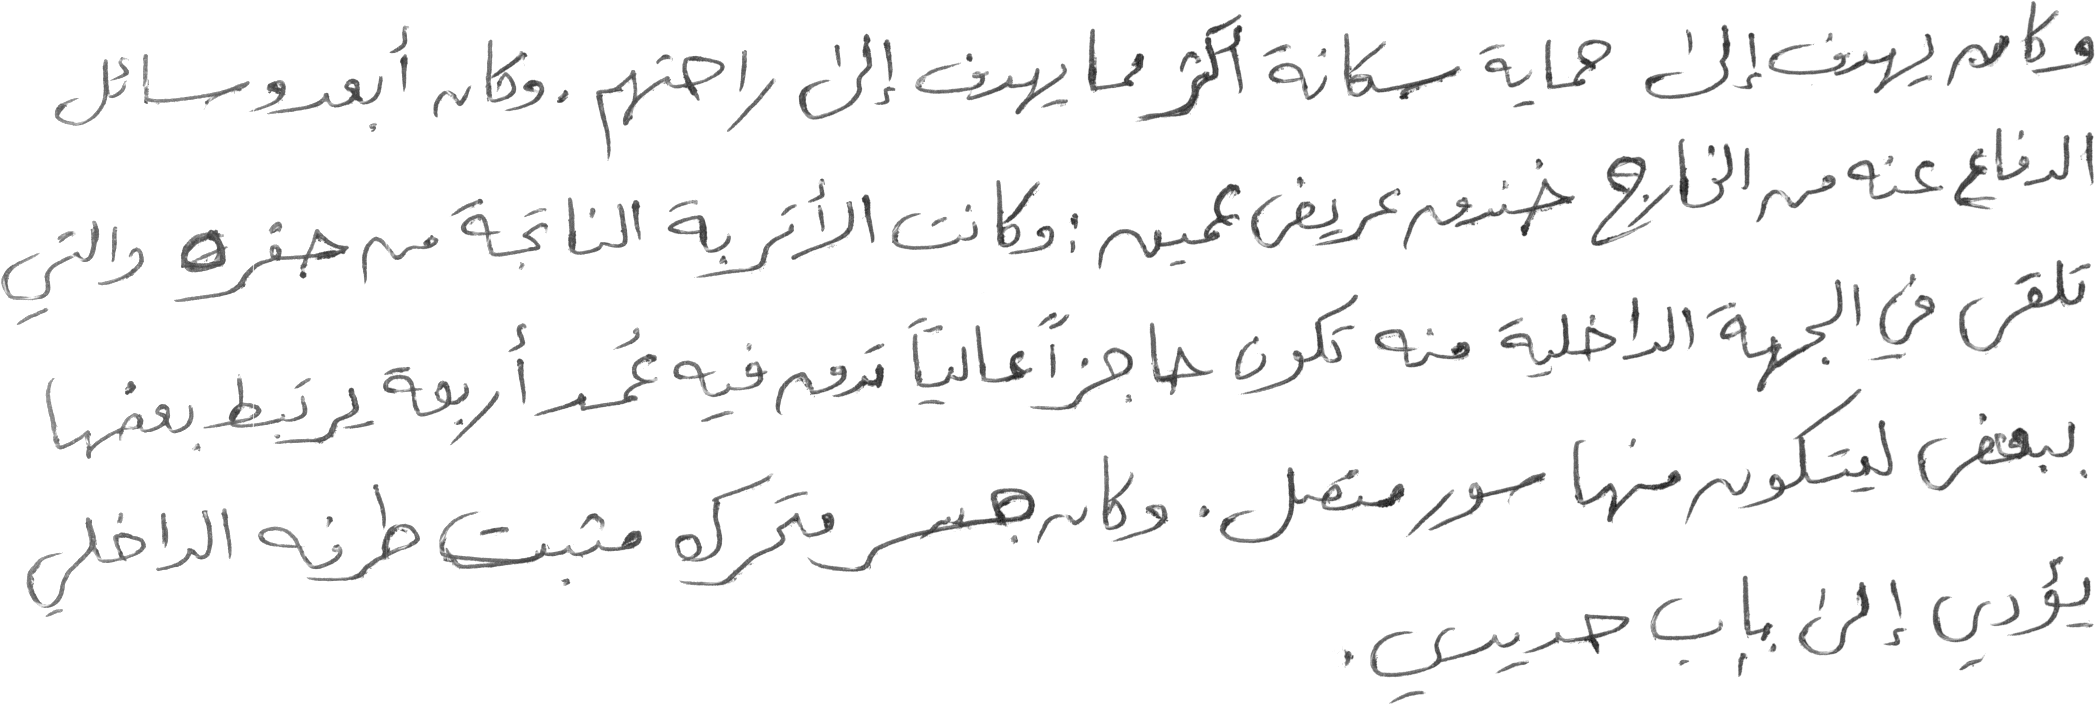 وكان يهدف إلى حماية سكانة اكثر مما يهدف إلى راحتهم. وكان أبعد وسائل
الدفاع عنه من الخارج خندق عريض عميق؛ وكانت الأتربة الناتجة من حفره والتي
تلقى في الجهة الداخلية منه تكون حاجزاً عالياً تدق فيه عُمد أربعة يرتبط بعضها
ببعض ليتكون منها سور متصل. وكان جسر متحرك مثبت طرفه الداخلي
يؤدي إلى باب حديدي.